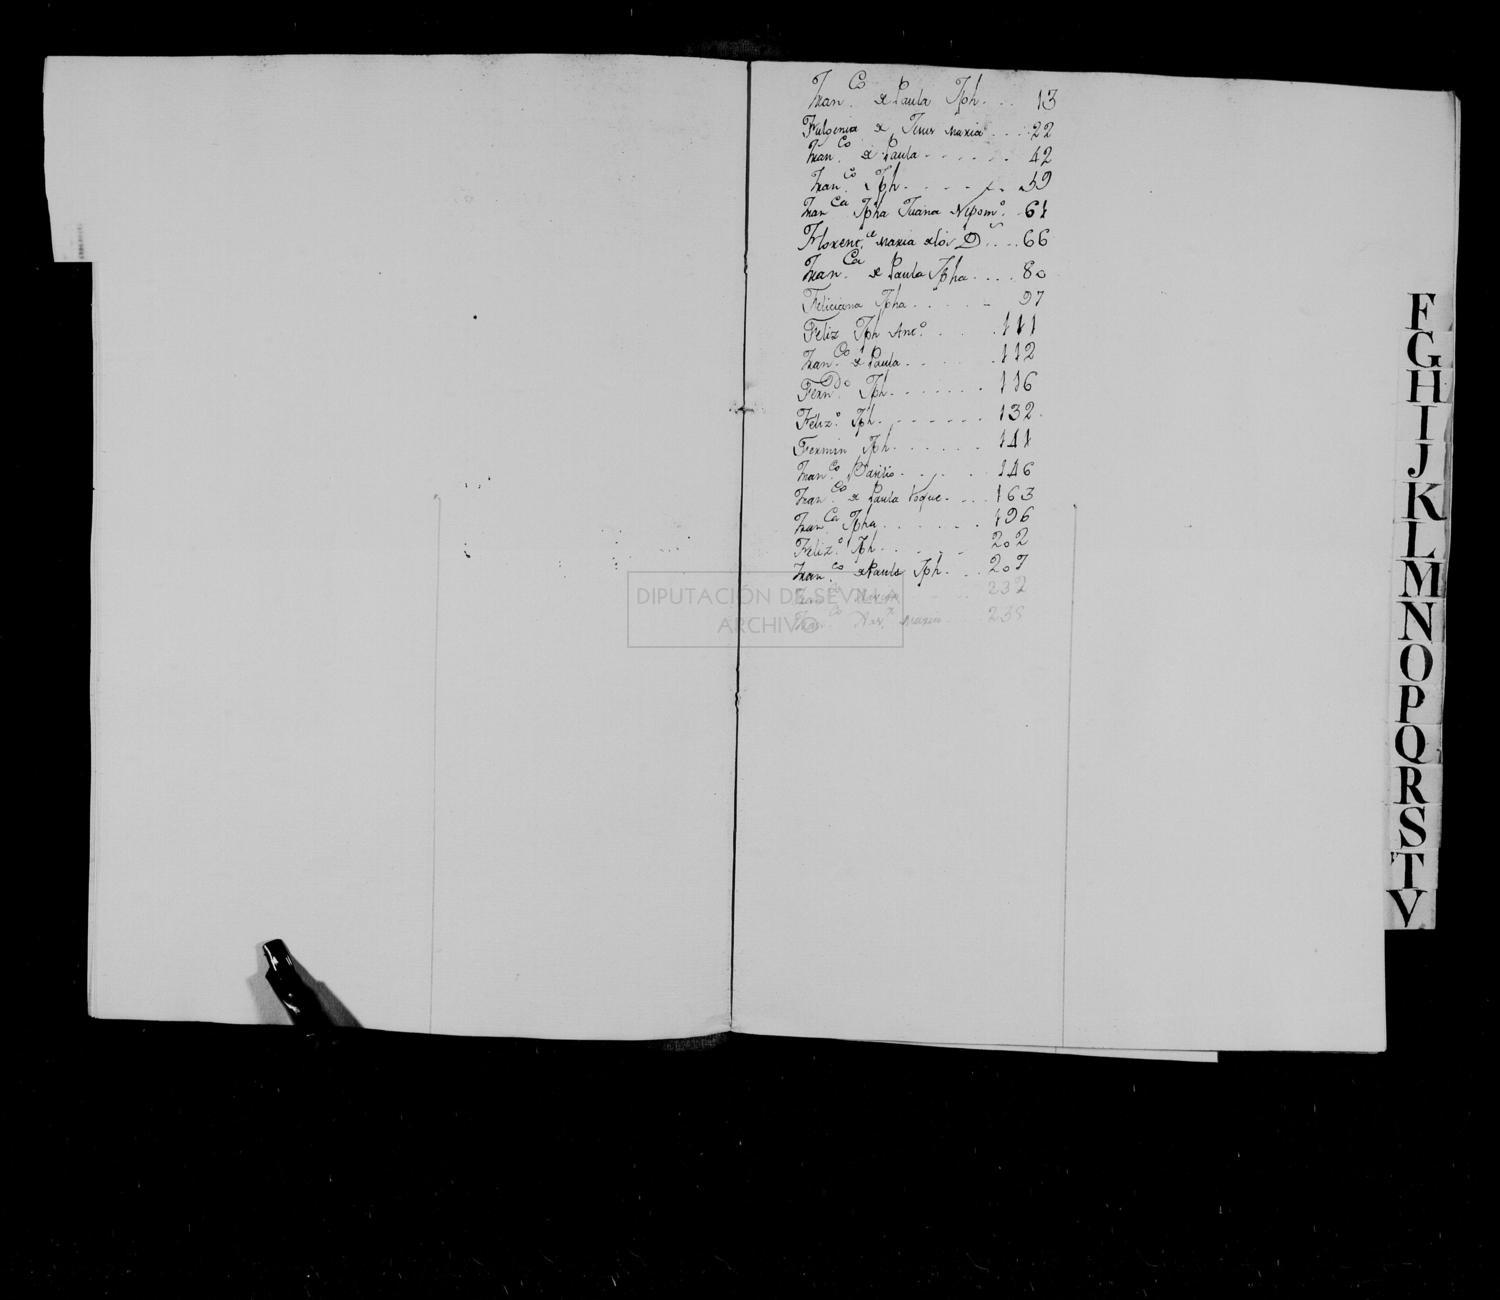 Fran.co de Paula Jph. . . 13
Fulgencia de Jesus Maria . . . 22
Fran.co de Paula . . . . . . 42
Fran.co Jph. . . . . . 59
Fran.ca Jpha Juana Nepom.o . 61
Florenc.a Maria de los D.s . . . 66
Fran.ca de Paula Jpha . . . . 80
Feliciana Jpha . . . . . 97
Feliz Jph Ant.o . . . . 111
Fran.co de Paula . . . . . . 112
Fern.do Jph. . . . . . . . 116
Feliz.o Jph. . . . . . . . 132.
Fermin Jph. . . . . . . 141
Fran.co Basilio . . . . . 146
Fran.co de Paula Roque . . . . 163
Fran.ca Jpha . . . . . . . 196
Feliz.o Jph . . . . . 202
Fran.co de Paula Jph. . . 207
232
Fran.co Xav.r Maria . . .
DIPUTACIÓN DE SEVILLA
ARCHIVO
F
G
H
I
J
K
L
M
N
O
P
Q
R
S
T
V